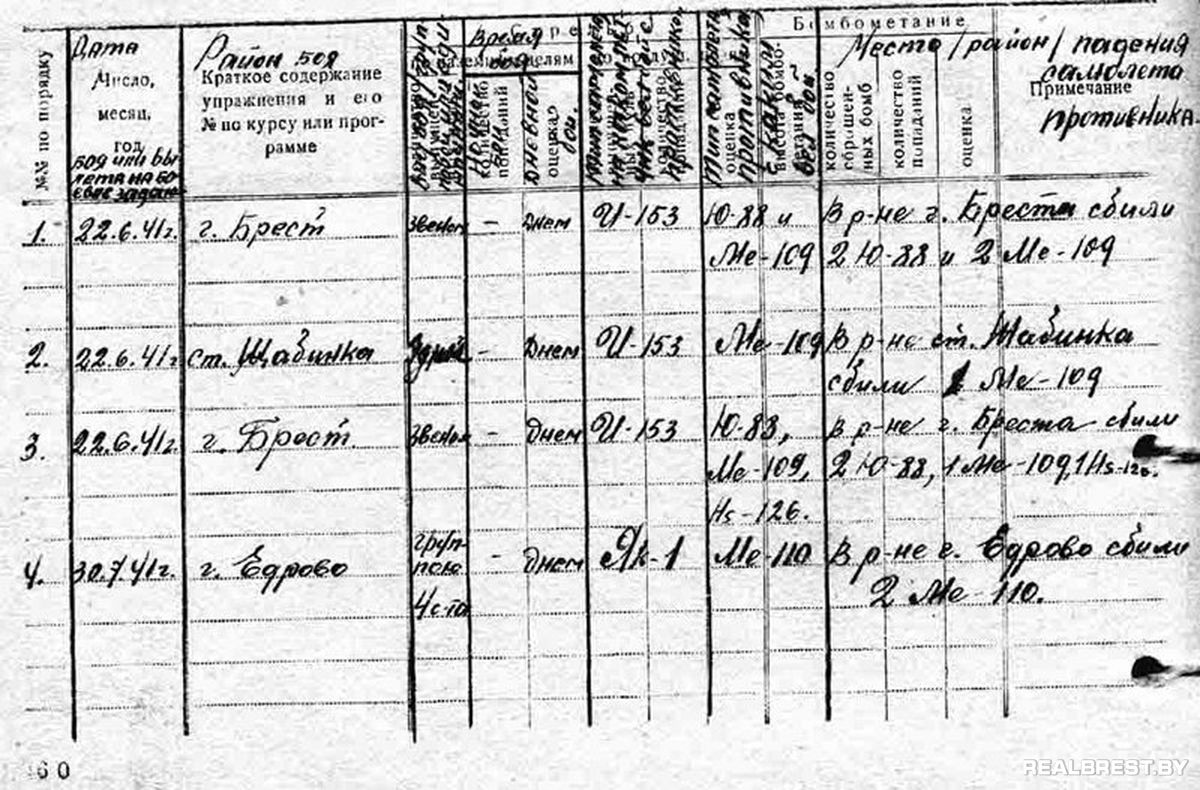 Дата
Число,
месяц,
год
бой или вы-
лета на бо-
евое задан.
№№ по порядку
Район боя
Краткое содержание
упражнения и его
№ по курсу или прог-
рамме
Время
боя
целям
Ночной
количество
попаданий
Дневной
оценка
бой.
Тип самолета
противника
оценка
Бомбометание
количество
сброшен-
ных бомб
количество
попаданий
оценка
Место /район/ падения
самолета
Примечание
противника.
1. 22.6.41г. г. Брест звеном – Днем И-153 Ю-88 и В р-не г. Бреста сбили
Ме-109 2 Ю-88 и 2 Ме-109
2. 22.6.41г ст. Жабинка – Днем И-153 Ме-109 В р-не ст. Жабинка
сбили 1 Ме-109
3. 22.6.41г. г. Брест. звеном – Днем И-153 Ю-88, В р-не г. Бреста сбили
Ме-109, 2 Ю-88, 1 Ме-109, 1 Hs-126.
Hs-126.
4. 30.7.41г. г. Едрово груп- – Днем Як-1 Ме-110 В р-не г. Едрово сбили
пою 2 Ме-110.
4 с-та
60
REALBREST.BY